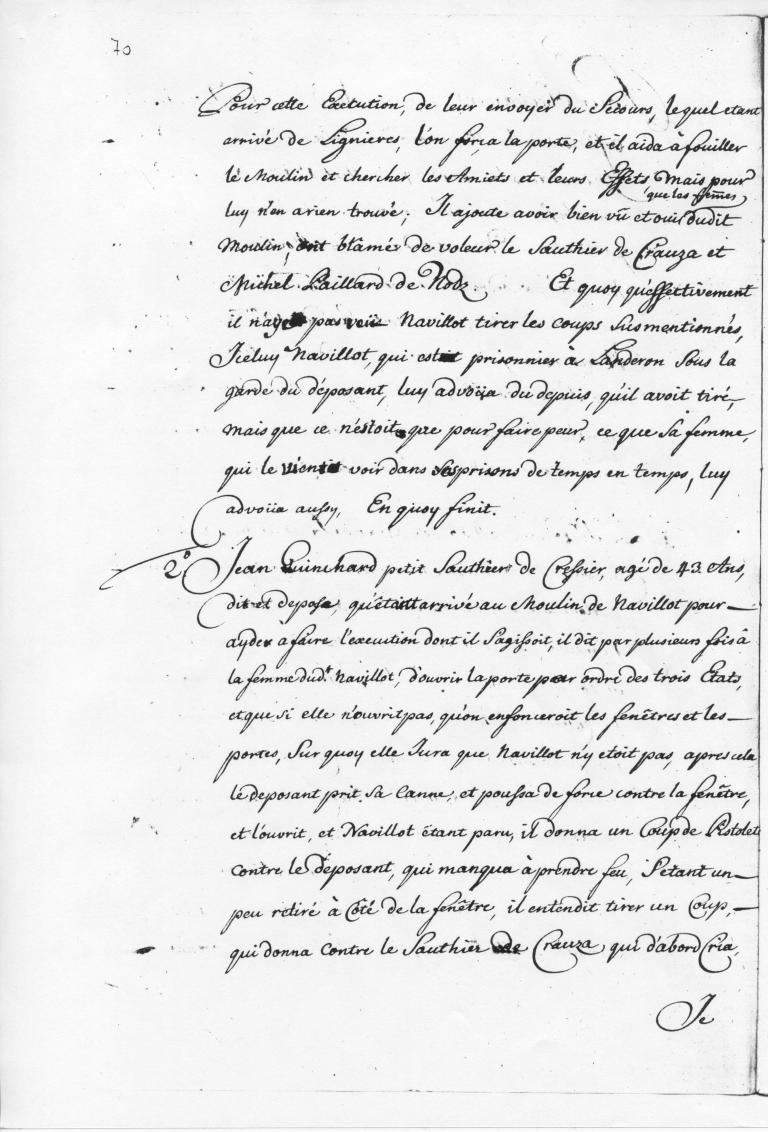 70
Pour cette Execution, de leur envoyer du Secours, lequel etant
arrivé de Lignieres, l'on força la porte, et il aida à fouiller
le Moulin et chercher les Amiets et leurs Effets mais pour
que les femes
luy n'en a rien trouvé; Il ajoute avoir bien vû et oui dudit
Moulin, ont blâmé de voleur le Sauthier de Crauza et
Michel Laillard de Nodz Et quoy qu'effectivement
il n'aye pas veüe Navillot tirer les coups susmentionnés,
Iceluy Navillot, qui estoit prisonnier à Landeron sous la
garde du déposant, luy advoüa du depuis, qu'il avoit tiré,
mais que ce n'estoit que pour faire peur, ce que sa femme,
qui le vient voir dans ses prisons de temps en temps, luy
advoüa aussy, En quoy finit.
2.° Jean Guinchard petit Sauthier de Cressier, agé de 43. Ans,
dit et depose, qu'étant arrivé au Moulin de Navillot pour
ayder à faire l'execution dont il s'agissoit, il dit par plusieurs fois à
la femme dud.t Navillot, d'ouvrir la porte par ordre des trois Etats,
et que si elle n'ouvrit pas, qu'on enfonceroit les fenêtres et les
portes, sur quoy elle Jura que Navillot n'y etoit pas, apres cela
le deposant prit sa Canne, et poussa de force contre la fenêtre,
et l'ouvrit, et Navillot étant paru, il donna un Coup de Pistolet
contre le Déposant, qui manqua à prendre feu, S'etant un
peu retiré à Côté de la fenêtre, il entendit tirer un Coup,
qui donna contre le Sauthier de Crauza qui d'abord Cria,
Je